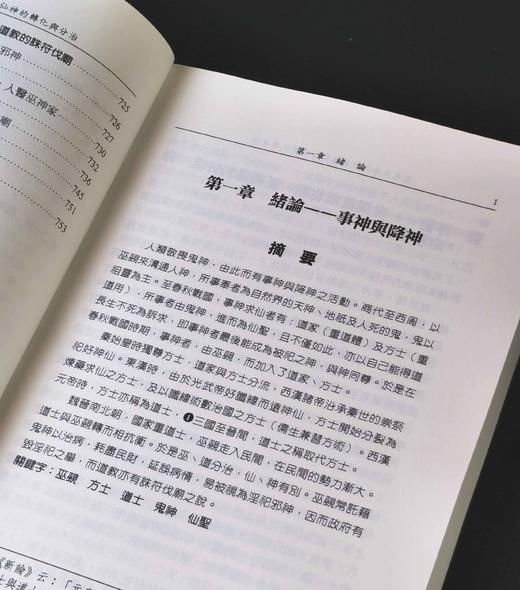 仙神的轉化與分治
道教的誅符伐廟
725
邪神
726
727
人醫巫神家
730
732
廟
736
745
751
753
第一章 緒論
1
第一章 緒論——事神與降神
摘要
人類敬畏鬼神，由此而有事神與降神之活動。商代至西周，以
巫覡來溝通人神，所事奉者為自然界的天神、地祇及人死的鬼，鬼以
祖靈為主。至春秋戰國，事神求仙者有：道家（重道體）及方士（重
道用），所事者由鬼神，進而為仙聖，且不僅如此，亦以自己能得道
長生不死為訴求，即事神者最後能成為被祀之神，與神同尊。於是在
春秋戰國時期，事神者，由巫覡，而加入了道家、方士。
秦始皇時獨尊方士，道家與方士分流，西漢諸帝治承秦世的崇祭
祀好神仙。東漢時，由於光武帝好讖緯而遠神仙，方士開始分裂為
煉藥求仙之方士，及以讖緯術數治國之方士（儒生兼習方術）。西漢
元帝時，方士亦稱為道士，❶三國至晉間，道士之稱取代方士。
魏晉南北朝，國家重道士，巫覡走入民間，在民間的勢力漸大。
道士與巫覡轉而相抗衡。於是巫、道分治，仙、神有別。巫覡常託藉
鬼神以治病，耗盡民財，延誤病情，易被視為淫祀邪神，因而政府有
毀淫祀之舉，而道教亦有誅符伐廟之說。
關鍵字：巫覡 方士 道士 鬼神 仙聖
《新論》云：「元